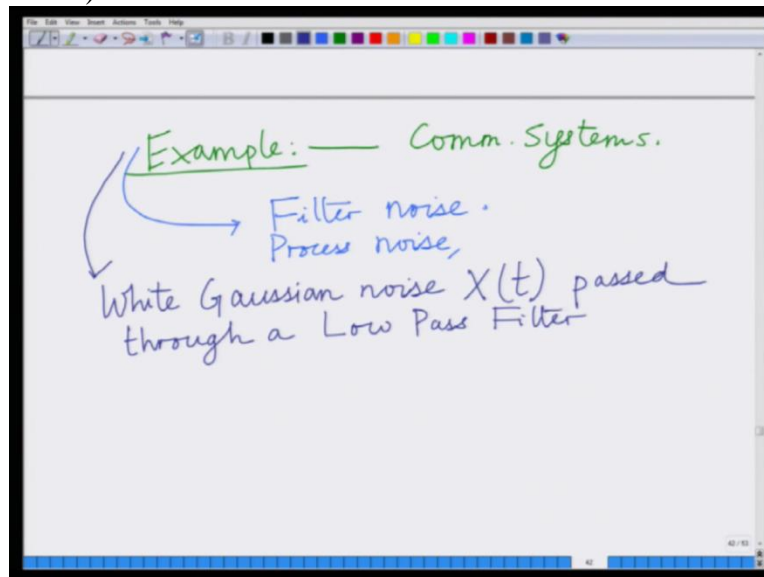 File Edit View Insert Actions Tools Help
Example: — Comm. Systems.
Filter noise.
Process noise,
White Gaussian noise X(t) passed
through a Low Pass Filter
42 / 53
42